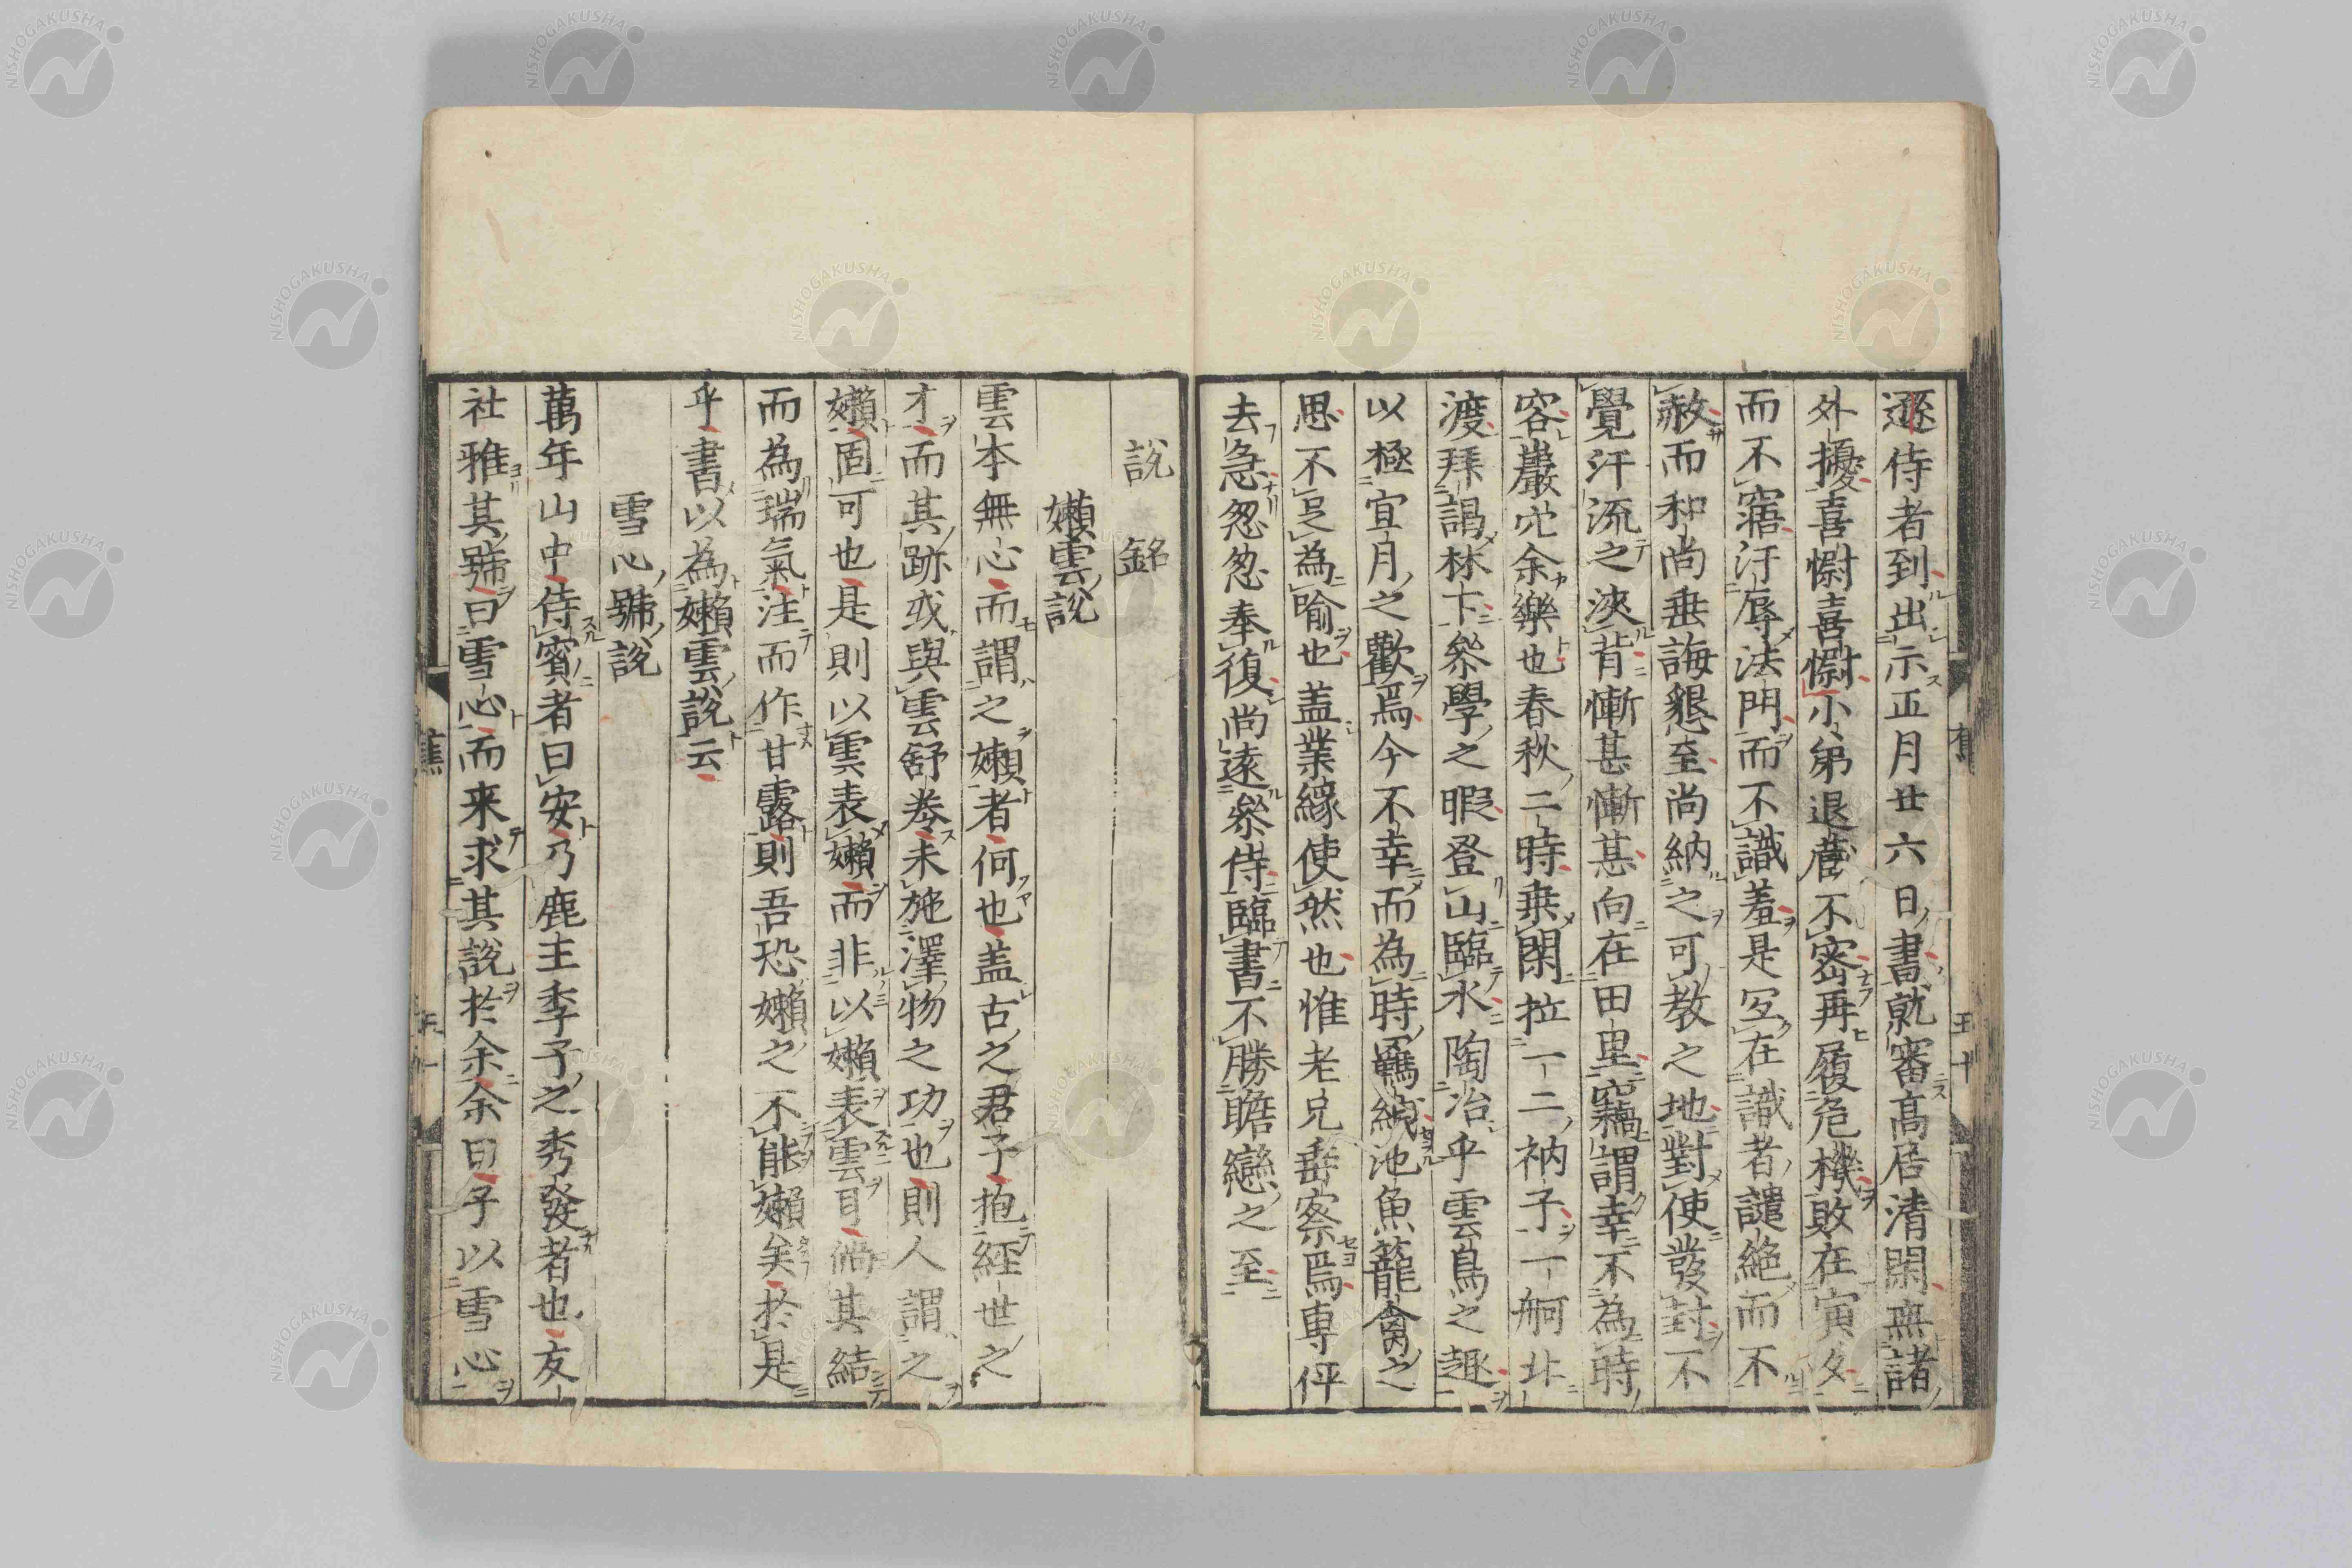 遜侍者到出示正月廿六日書就審高居清閑無諸
外擾喜慰喜慰小弟退藏不密再履危機敗在寅夕
而不寤汙辱法門而不識羞是宜在識者譴絶而不
赦而和尚垂誨懇至尚納之可教之地對使發封不
覺汗流之浹背慚甚慚甚向在田里竊謂幸不為時
容巖穴余樂也春秋二時乗閑拉一二衲子一舸北
渡拜謁林下叅學之暇登山臨水陶冶乎雲鳥之趣
以極宜月之歡焉今不幸而為時羈紲池魚籠禽之
思不足為喻也盖業緣使然也惟老兄垂察焉專伻
去急怱怱奉復尚遠叅侍臨書不勝瞻戀之至
説 銘
嬾雲説
雲本無心而謂之嬾者何也盖古之君子抱経世之
才而其跡或與雲舒巻未施澤物之功也則人謂之
嬾固可也是則以雲表嬾而非以嬾表雲耳倘其結
而為瑞氣注而作甘露則吾恐嬾之不能嬾矣於是
乎書以為嬾雲説云
雪心號説
萬年山中侍賓者曰安乃鹿主季子之秀發者也友
社雅其號曰雪心而来求其説於余余曰子以雪心
蕉 五十
蕉 五十一
NISHOGAKUSHA